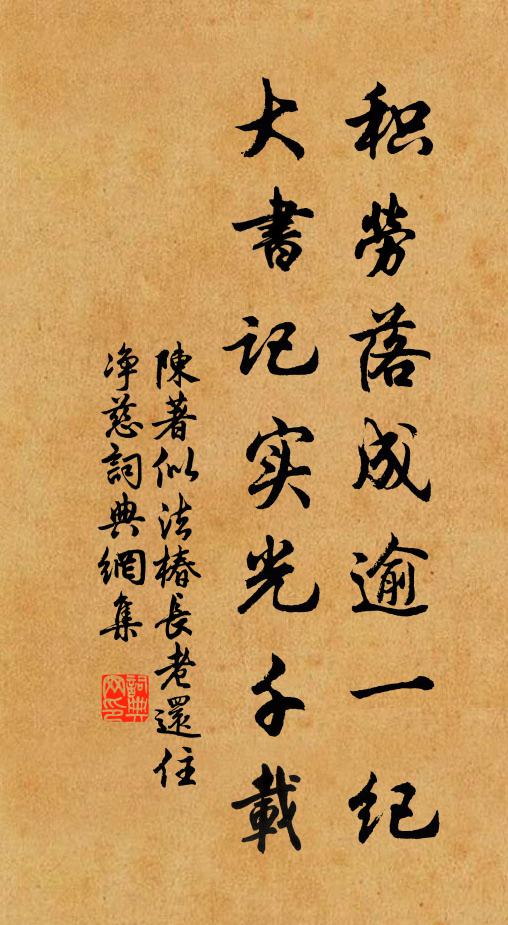 积劳落成逾一纪
大书记实光千载
陳著似法椿長老還住
净慈詞典網集
詞典
网印